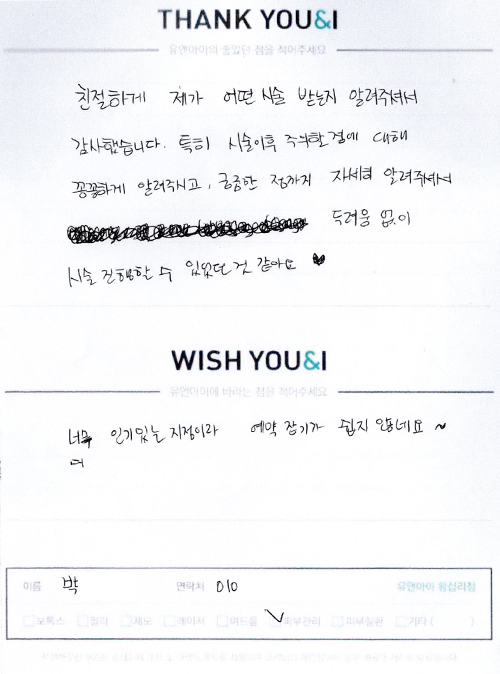 THANK YOU&I
유앤아이의 좋았던 점을 적어주세요
친절하게 제가 어떤 시술 받는지 알려주셔서
감사했습니다. 특히 시술이후 주의할점에 대해
꼼꼼하게 알려주시고, 궁금한 점까지 자세히 알려주셔서
두려움 없이
시술 진행할 수 있었던 것 같아요 ♥
WISH YOU&I
유앤아이에 바라는 점을 적어주세요
너무 인기있는 지점이라 예약 잡기가 쉽지 않네요 ~
이름 박 연락처 010 유앤아이 왕십리점
보톡스 필러 제모 레이저 여드름 피부관리 피부질환 기타 ( )